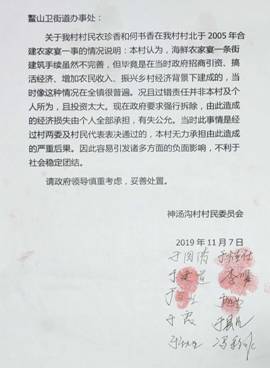 鳌山卫街道办事处：
关于我村村民农珍香和何书香在我村村北于 2005 年合
建农家宴一事的情况说明：本村认为，海鲜农家宴一条街
建筑手续虽然不完善，但毕竟是在当时政府招商引资、搞
活经济、增加农民收入、振兴乡村经济背景下建成的，当
时像这种情况在全镇很普遍。况且过错责任并非本村及个
人所为，且投资太大。现在政府要求强行拆除，由此造成
的经济损失由个人全部承担，有失公允。当时此事情是经
过村两委及村民代表表决通过的，本村无力承担由此造成
的严重后果。因此容易引发诸多方面的负面影响，不利于
社会稳定团结。
请政府领导慎重考虑，妥善处置。
神汤沟村村民委员会
2019 年 11 月 7 日